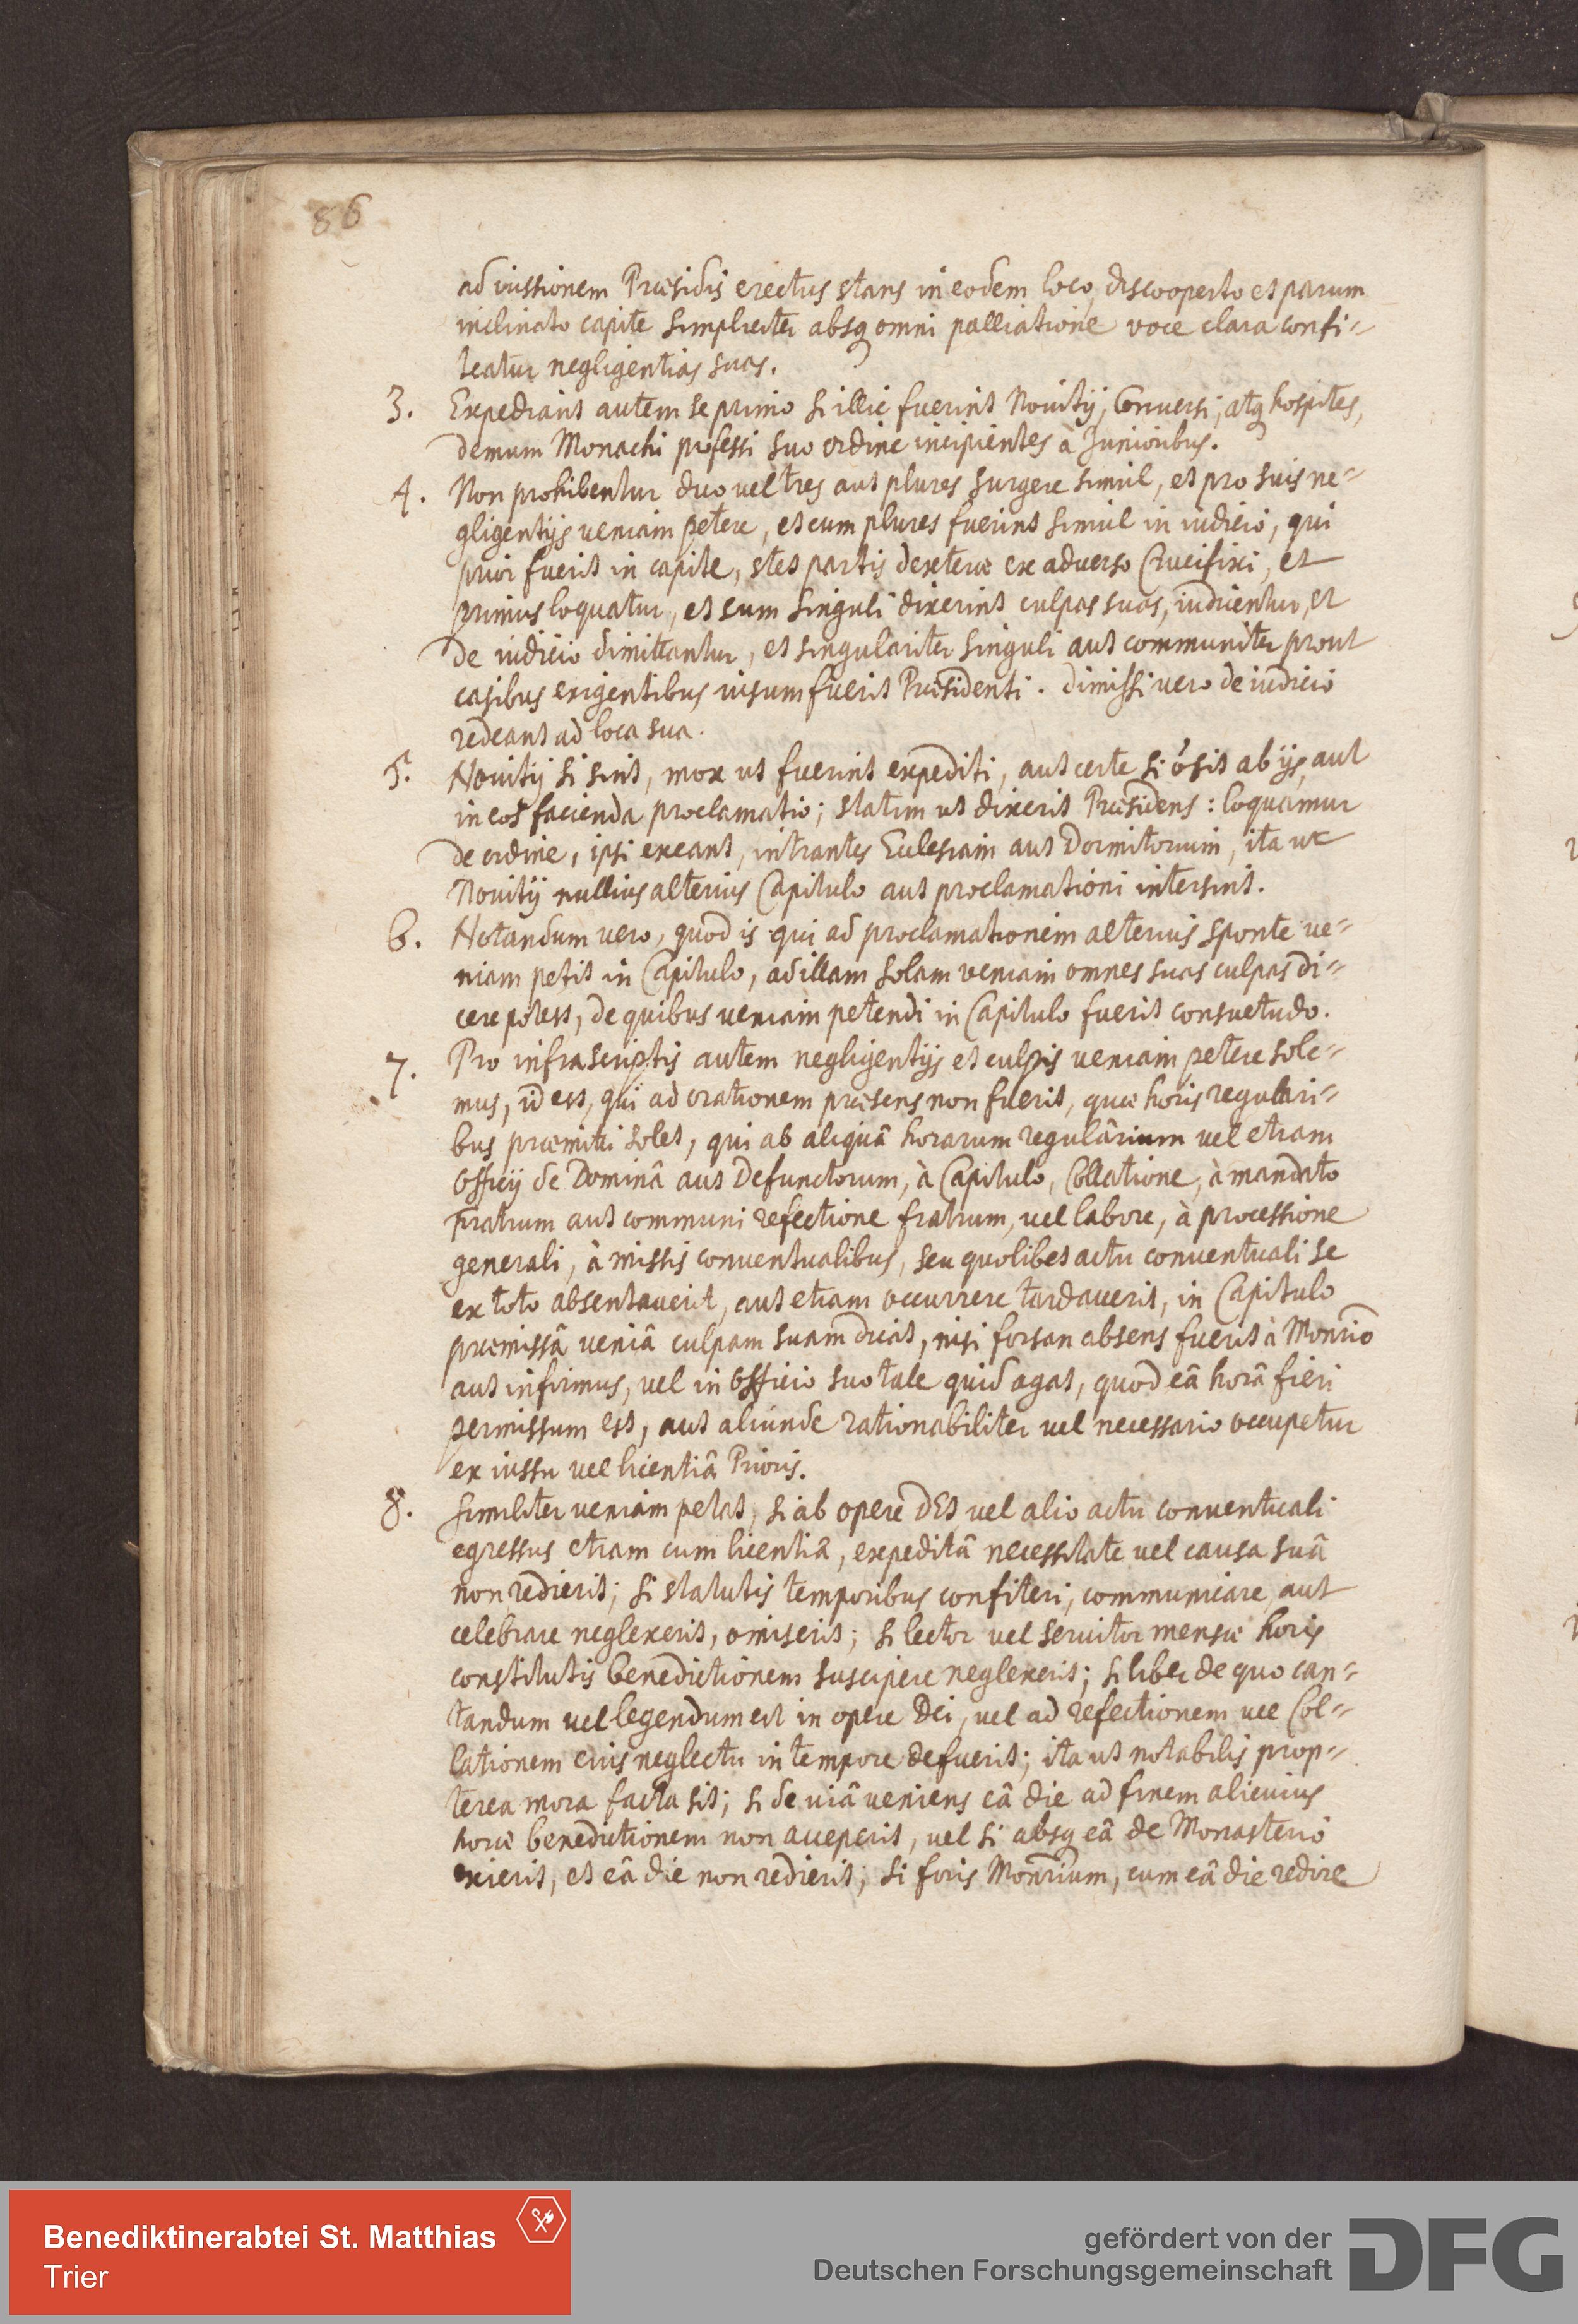 86
ad iussionem Præsidis erectus stans in eodem loco discooperto et parum
inclinato capite simpliciter absq omni palliatione voce clara confi-
teatur negligentias suas.
3. Expediant autem se primo si illic fuerint Nouitij, Conuersi, atq hospites,
demum Monachi professi suo ordine incipientes à Junioribus.
4. Non prohibentur duo vel tres aut plures surgere simul, et pro suis ne-
gligentijs veniam petere, et cum plures fuerint simul in iudicio, qui
prior fuerit in capite, stet partis dexteræ ex aduerso Crucifixi, et
primus loquatur, et cum singuli dixerint culpas suas, iudicentur, et
de iudicio dimittantur, et singulariter singuli aut communiter prout
casibus exigentibus uisum fuerit Præsidenti. dimissi uero de iudicio
redeant ad loca sua.
5. Nouitij si sint, mox ut fuerint expediti, aut certe si ó sit ab ijs, aut
in eos facienda proclamatio; statim ut dixerit Præsidens: loquamur
de ordine, ipsi exeant, intrantes Ecclesiam aut Dormitorium, ita ut
Nouitij nullius alterius Capitulo aut proclamationi intersint.
6. Notandum vero, quod is qui ad proclamationem alterius sponte ue-
niam petit in Capitulo, ad illam solam veniam omnes suas culpas di-
cere potest, de quibus veniam petendi in Capitulo fuerit consuetudo.
7. Pro infrascriptis autem negligentijs et culpis veniam petere sole-
mus, id est, qui ad orationem præsens non fuerit, quæ horis regulari-
bus præmitti solet, qui ab aliquâ horarum regulârium vel etiam
Officij de Dominâ aut Defunctorum, à Capitulo, Collatione, à mandato
fratrum aut communi refectione fratrum, vel labore, à processione
generali, à missis conuentualibus, seu quolibet actu conuentuali se
ex toto absentauerit, aut etiam occurrere tardauerit, in Capitulo
præmissâ veniâ culpam suam dicat, nisi forsan absens fuerit à Monrio
aut infirmus, vel in officio suo tale quid agat, quod eâ horâ fieri
permissum est, aut aliunde rationabiliter vel necessario occupetur
ex iussu vel licentiâ Prioris.
8. Similiter veniam petat, si ab opere DEI vel alio actu conuentuali
egressus etiam cum licentiâ, expeditâ necessitate vel causa suâ
non redierit; si statutis temporibus confiteri, communicare aut
celebrare neglexerit, omiserit; si lector vel seruitor mensæ horis
constitutis benedictionem suscipere neglexerit; si liber de quo can-
tandum vel legendum est in opere Dei, vel ad refectionem vel Col-
lationem eius neglectu in tempore defuerit; ita ut notabilis prop-
terea mora facta sit; si de viâ veniens eâ die ad finem alicuius
horæ benedictionem non acceperit, vel si absq eâ de Monasterio
exierit, et eâ die non redierit; si foris Monrium, cum eâ die redire
Benediktinerabtei St. Matthias
Trier
gefördert von der
Deutschen Forschungsgemeinschaft
DFG